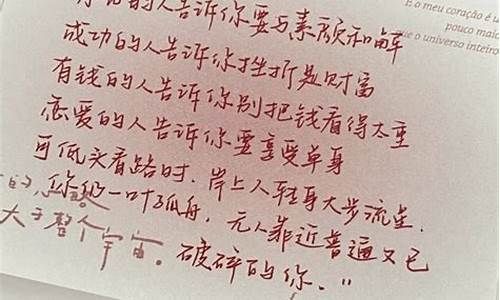 好看的人告诉你要与素颜和解
成功的人告诉你挫折是财富
有钱的人告诉你别把钱看得太重
恋爱的人告诉你要享受单身
可低头看路时,岸上人转身大步流星,
你似一叶孤舟,无人靠近普遍又已
破碎的你."
的,
大于整个宇宙。
E o meu coração é u
pouco maio
que o universo inteiro